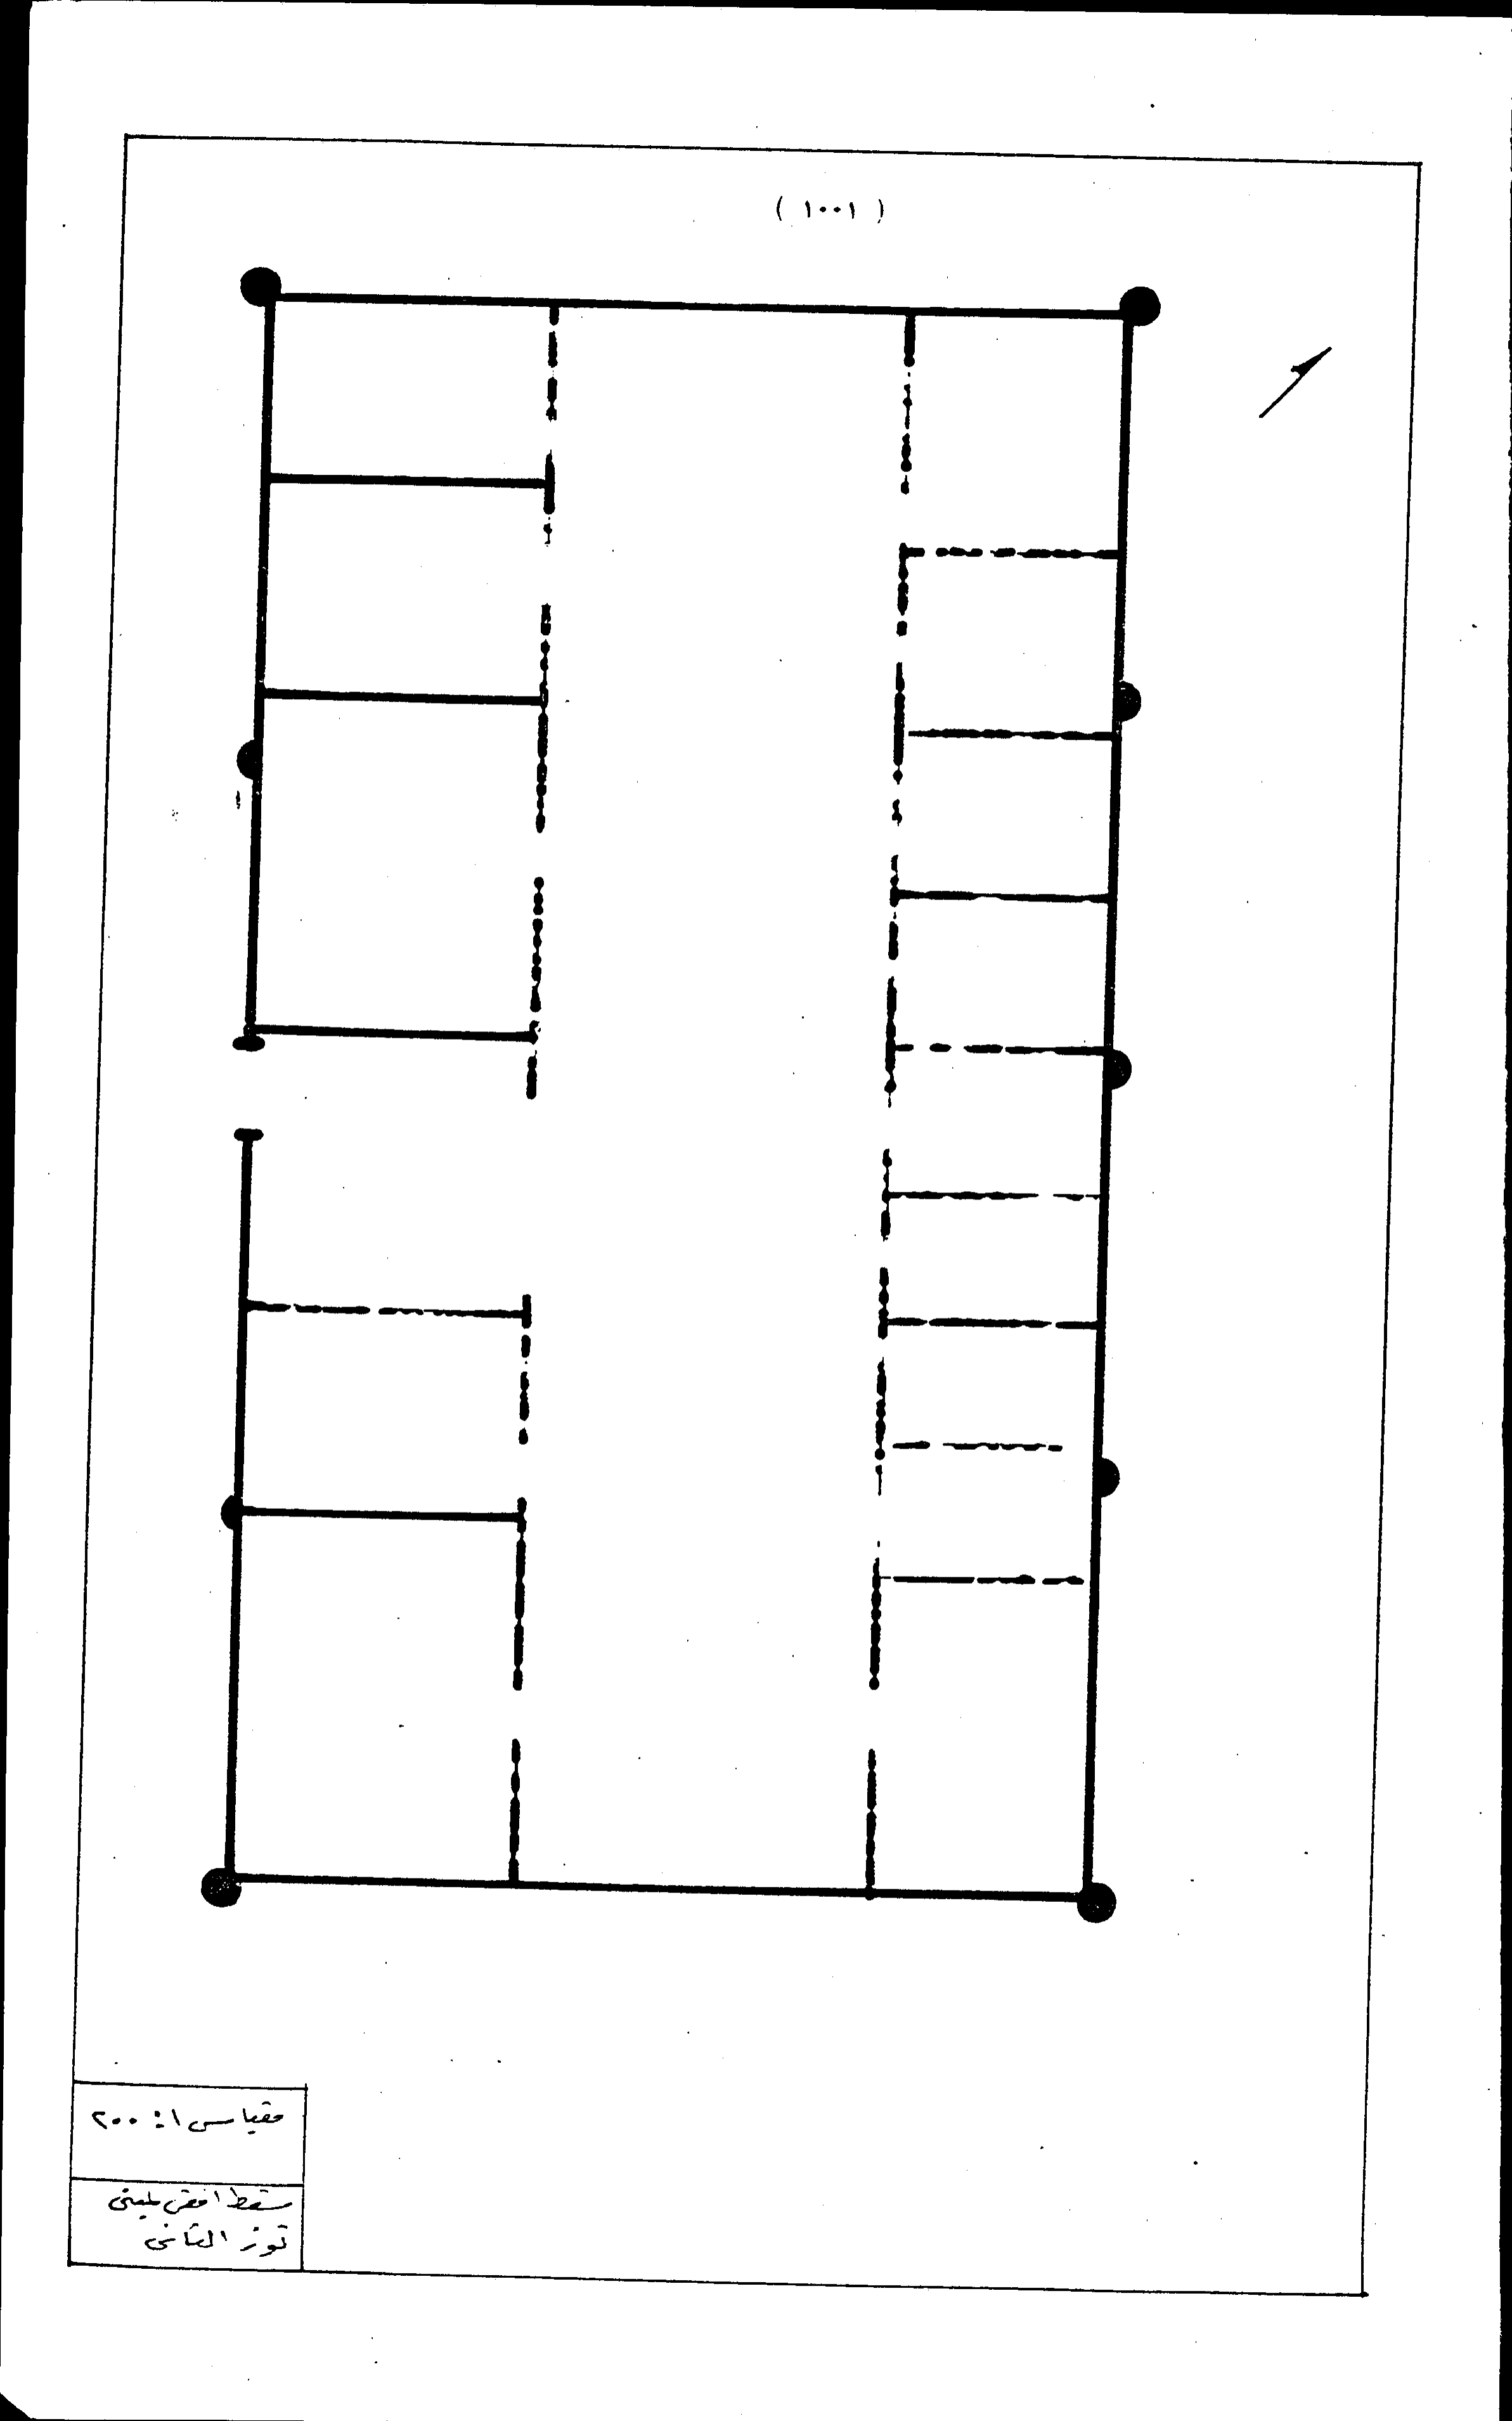 ( ١٠٠١ )
مقياس ١ : ٢٠٠
مسقط افقى لمبنى
توز الثانى